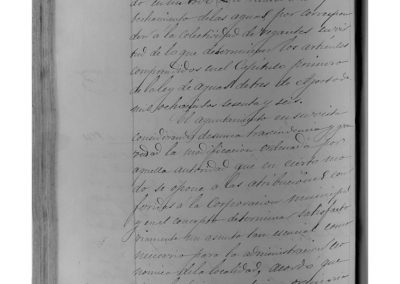 vechamiento de las aguas por correspon
der a la colectividad de regantes en vir
tud de lo que determinan los articulos
comprendidos en el Capitulo primero
de la ley de aguas de tres de Agosto de
mil ochocientos sesenta y seis.
El ayuntamiento en su vista
considerando de suma trascendencia y gra
vedad la modificacion ordenada por
aquella autoridad que en cierto mo
do se opone a las atribuciones con
feridas a la Corporacion municipal
y en el concepto determina satisfacto
riamente un asunto tan esencial como
necesario para la administracion eco
nomica de la localidad, acordo que